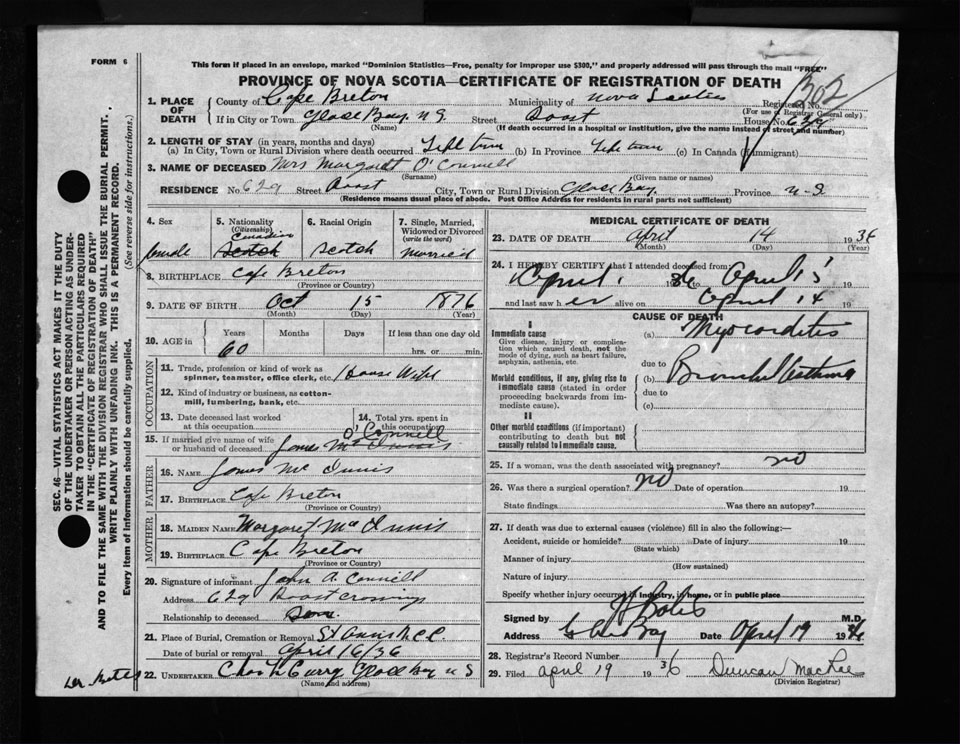 FORM 6
This form if placed in an envelope, marked "Dominion Statistics—Free, penalty for improper use $300," and properly addressed will pass through the mail "FREE"
PROVINCE OF NOVA SCOTIA—CERTIFICATE OF REGISTRATION OF DEATH
302
1. PLACE OF DEATH
County of Cape Breton Municipality of Nova Scotia Registered No.
(For use of Registrar General only)
If in City or Town Glace Bay N.S. Street House No. 629
(Name) (If death occurred in a hospital or institution, give the name instead of street and number)
2. LENGTH OF STAY (in years, months and days)
(a) In City, Town or Rural Division where death occurred Life time (b) In Province Life time (c) In Canada (if immigrant)
3. NAME OF DECEASED Mrs Margaret O'Connell
(Surname) (Given name or names)
RESIDENCE No. 629 Street City, Town or Rural Division Glace Bay Province N.S.
(Residence means usual place of abode. Post Office Address for residents in rural parts not sufficient)
4. Sex female
5. Nationality (Citizenship) Canadian Scotch
6. Racial Origin Scotch
7. Single, Married, Widowed or Divorced (write the word) Married
8. BIRTHPLACE Cape Breton
(Province or Country)
9. DATE OF BIRTH Oct 15 1876
(Month) (Day) (Year)
10. AGE in Years Months Days If less than one day old
60 hrs. or min.
OCCUPATION
11. Trade, profession or kind of work as spinner, teamster, office clerk, etc. House Wife
12. Kind of industry or business, as cotton-mill, lumbering, bank, etc.
13. Date deceased last worked at this occupation
14. Total yrs. spent in this occupation
15. If married give name of wife or husband of deceased James O'Connell
FATHER
16. NAME James Mc Innis
17. BIRTHPLACE Cape Breton
MOTHER
18. MAIDEN NAME Margaret Mac Innis
19. BIRTHPLACE Cape Breton
(Province or Country)
20. Signature of informant John A. Connell
Address 629
Relationship to deceased Son
21. Place of Burial, Cremation or Removal
Date of burial or removal April 16/36
22. UNDERTAKER Glace Bay N S
(Name and address)
MEDICAL CERTIFICATE OF DEATH
23. DATE OF DEATH April 14 1936
(Month) (Day) (Year)
24. I HEREBY CERTIFY that I attended deceased from
April 1 1936 to April 19
and last saw her alive on April 14 19
CAUSE OF DEATH
I
Immediate cause
Give disease, injury or complication which caused death, not the mode of dying, such as heart failure, asphyxia, asthenia, etc.
(a) Myocarditis
due to
Morbid conditions, if any, giving rise to immediate cause (stated in order proceeding backwards from immediate cause).
(b) Bronchial Asthma
due to
(c)
II
Other morbid conditions (if important) contributing to death but not causally related to immediate cause.
25. If a woman, was the death associated with pregnancy? no
26. Was there a surgical operation? no Date of operation 19
State findings Was there an autopsy?
27. If death was due to external causes (violence) fill in also the following:—
Accident, suicide or homicide? Date of injury 19
(State which)
Manner of injury
(How sustained)
Nature of injury
Specify whether injury occurred in industry, in home, or in public place
Signed by M.D.
Address Glace Bay Date April 19 1936
28. Registrar's Record Number
29. Filed April 19 1936 Duncan
(Division Registrar)
SEC. 46—VITAL STATISTICS ACT MAKES IT THE DUTY
OF THE UNDERTAKER OR PERSON ACTING AS UNDERTAKER TO OBTAIN ALL THE PARTICULARS REQUIRED
IN THE "CERTIFICATE OF REGISTRATION OF DEATH"
AND TO FILE THE SAME WITH THE DIVISION REGISTRAR WHO SHALL ISSUE THE BURIAL PERMIT.
WRITE PLAINLY WITH UNFADING INK. THIS IS A PERMANENT RECORD.
Every item of Information should be carefully supplied. (See reverse side for instructions.)